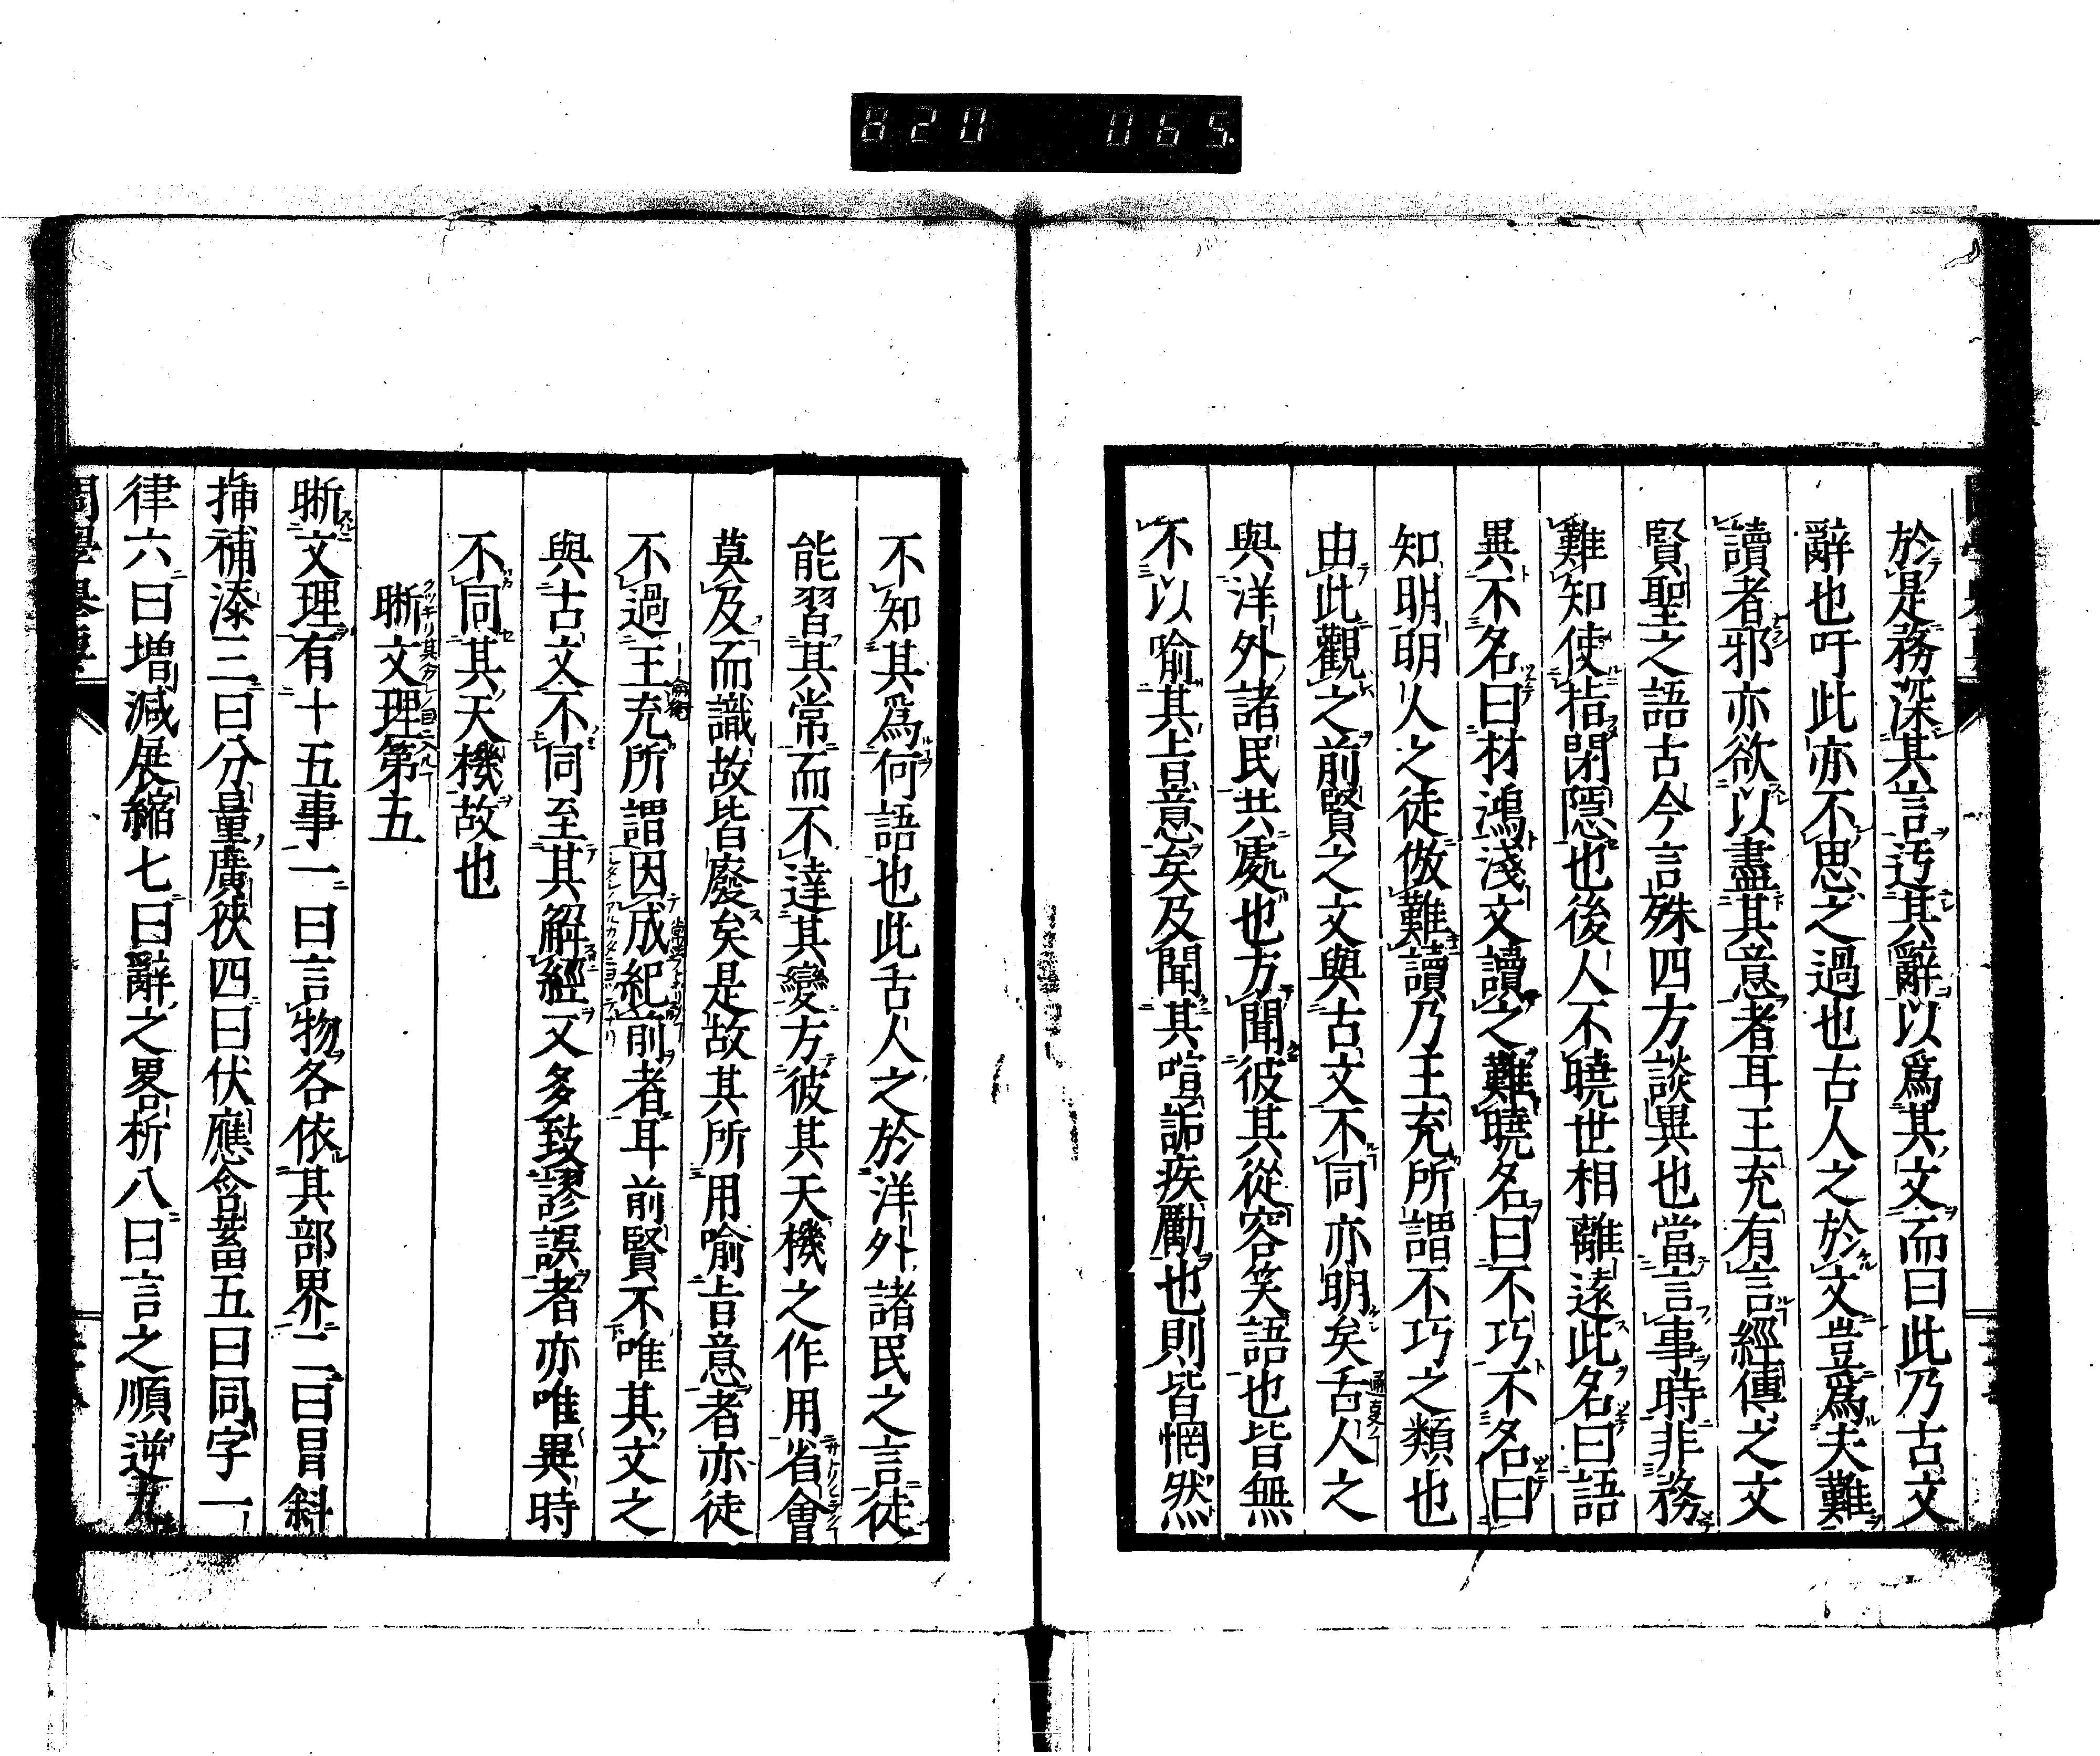 820 065
於是務深其言迃其辭以爲其文而曰此乃古文
辭也吁此亦不思之過也古人之於文豈爲夫難
讀者邪亦欲以盡其意者耳王充有言經傳之文
賢聖之語古今言殊四方談異也當言事時非務
難知使指閉隱也後人不曉世相離遠此名曰語
異不名曰材鴻淺文讀之難曉名曰不巧不名曰
知明明以人之徒倣難讀乃王充所謂不巧之類也
由此觀之前賢之文與古文不同亦明矣舌人之
與洋外諸民共處也方聞彼其從容笑語也皆無
不以喻其旨意矣及聞其喧詬疾勵也則皆惘然
不知其爲何語也此舌人之於洋外諸民之言徒
能習其常而不達其變方彼其天機之作用省會
莫及而識故皆廢矣是故其所用喻旨意者亦徒
不過王充所謂因成紀前者耳前賢不唯其文之
與古文不同至其解經又多致謬誤者亦唯異時
不同其天機故也
晣文理第五
晣文理有十五事一曰言物各依其部界二曰冒斜
插補漆三曰分量廣狹四曰伏應含蓄五曰同字一
律六曰增減展縮七曰辭之畧析八曰言之順逆九